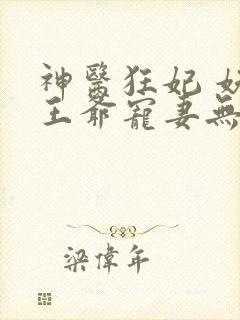 神醫狂妃
王爺寵妻無
梁偉年